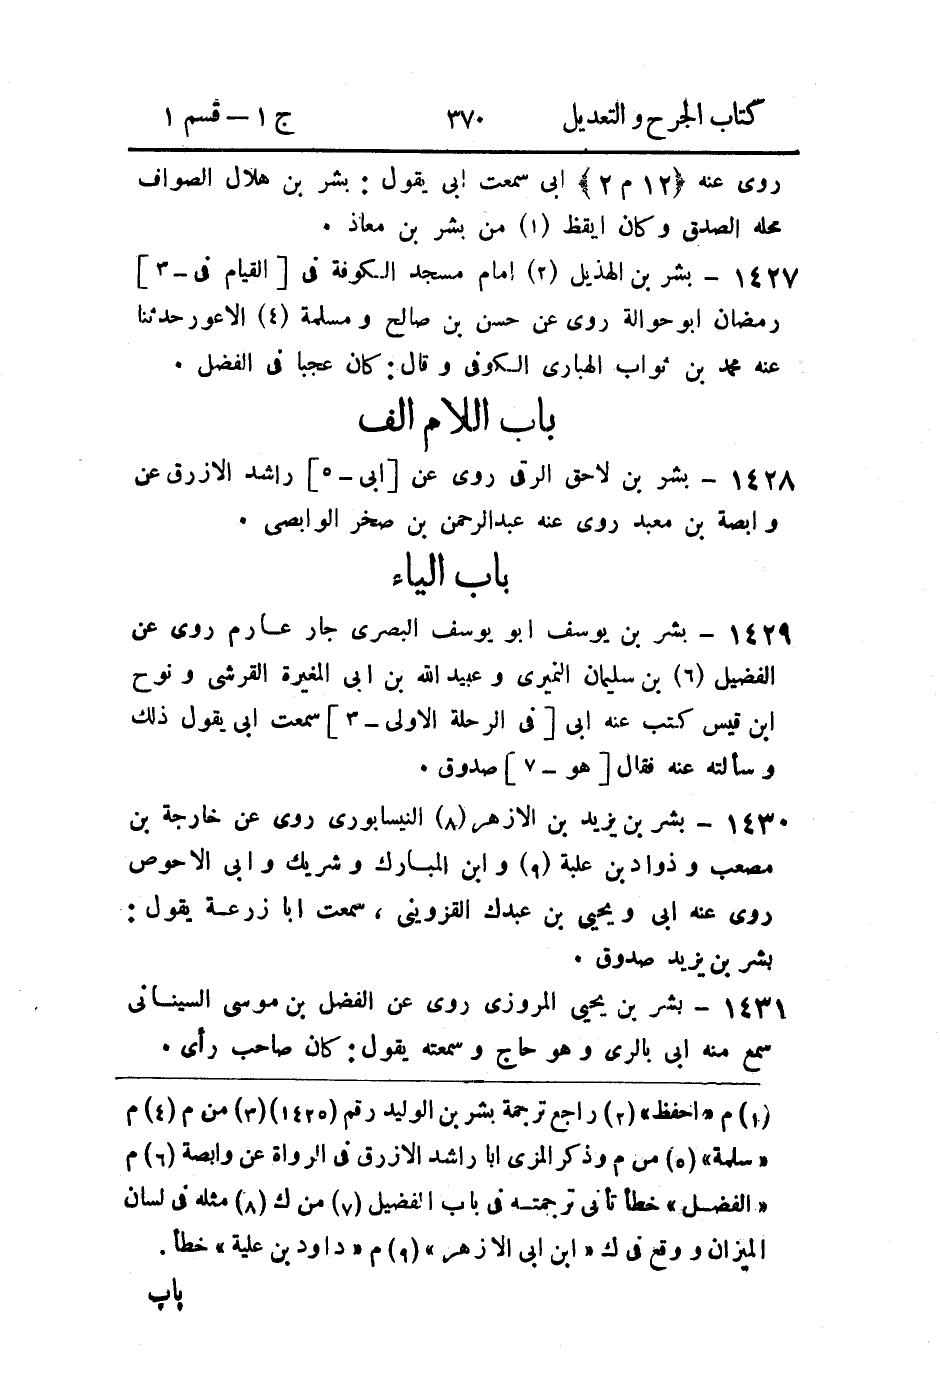 كتاب الجرح و التعديل ٣٧٠ ج ١ – قسم ١
روى عنه ﴿١٢ م ٢﴾ ابى سمعت ابى يقول : بشر بن هلال الصواف
محله الصدق و كان ايقظ (١) من بشر بن معاذ .
١٤٢٧ – بشر بن الهذيل (٢) امام مسجد الكوفة فى [ القيام فى – ٣ ]
رمضان ابو حوالة روى عن حسن بن صالح و مسلمة (٤) الاعور حدثنا
عنه محمد بن ثواب الهبارى الكوفى و قال : كان عجبا فى الفضل .
باب اللام الف
١٤٢٨ – بشر بن لاحق الرقى روى عن [ ابى – ٥ ] راشد الازرق عن
و ابصة بن معبد روى عنه عبدالرحمن بن صخر الوابصى .
باب الياء
١٤٢٩ – بشر بن يوسف ابو يوسف البصرى جار عارم روى عن
الفضيل (٦) بن سليمان النميرى و عبيد الله بن ابى المغيرة القرشى و نوح
ابن قيس كتب عنه ابى [ فى الرحلة الاولى – ٣ ] سمعت ابى يقول ذلك
و سألته عنه فقال [ هو – ٧ ] صدوق .
١٤٣٠ – بشر بن يزيد بن الازهر (٨) النيسابورى روى عن خارجة بن
مصعب و ذواد بن علبة (٩) و ابن المبارك و شريك و ابى الاحوص
روى عنه ابى و يحيى بن عبدك القزوينى ، سمعت ابا زرعة يقول :
بشر بن يزيد صدوق .
١٤٣١ – بشر بن يحيى المروزى روى عن الفضل بن موسى السينانى
سمع منه ابى بالرى و هو حاج و سمعته يقول : كان صاحب رأى .
(١) م «احفظ» (٢) راجع ترجمة بشر بن الوليد رقم (١٤٢٥) (٣) من م (٤) م
«سلمة» (٥) من م وذكر المزى ابا راشد الازرق فى الرواة عن وابصة (٦) م
«الفضل» خطأ تأتى ترجمته فى باب الفضيل (٧) من ك (٨) مثله فى لسان
الميزان و وقع فى ك « ابن ابى الازهر » (٩) م « داود بن علية » خطأ .
باب